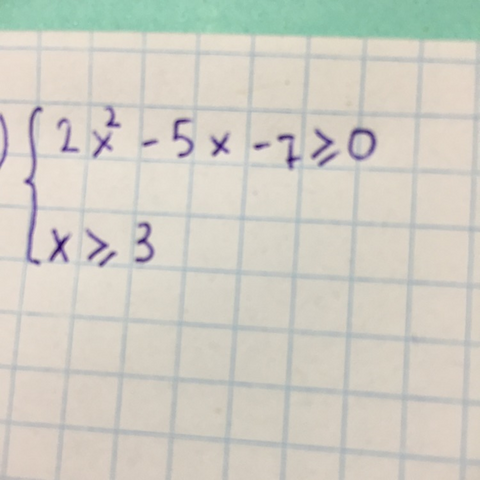 ) { 2x² - 5x - 7 ⩾ 0
x ⩾ 3